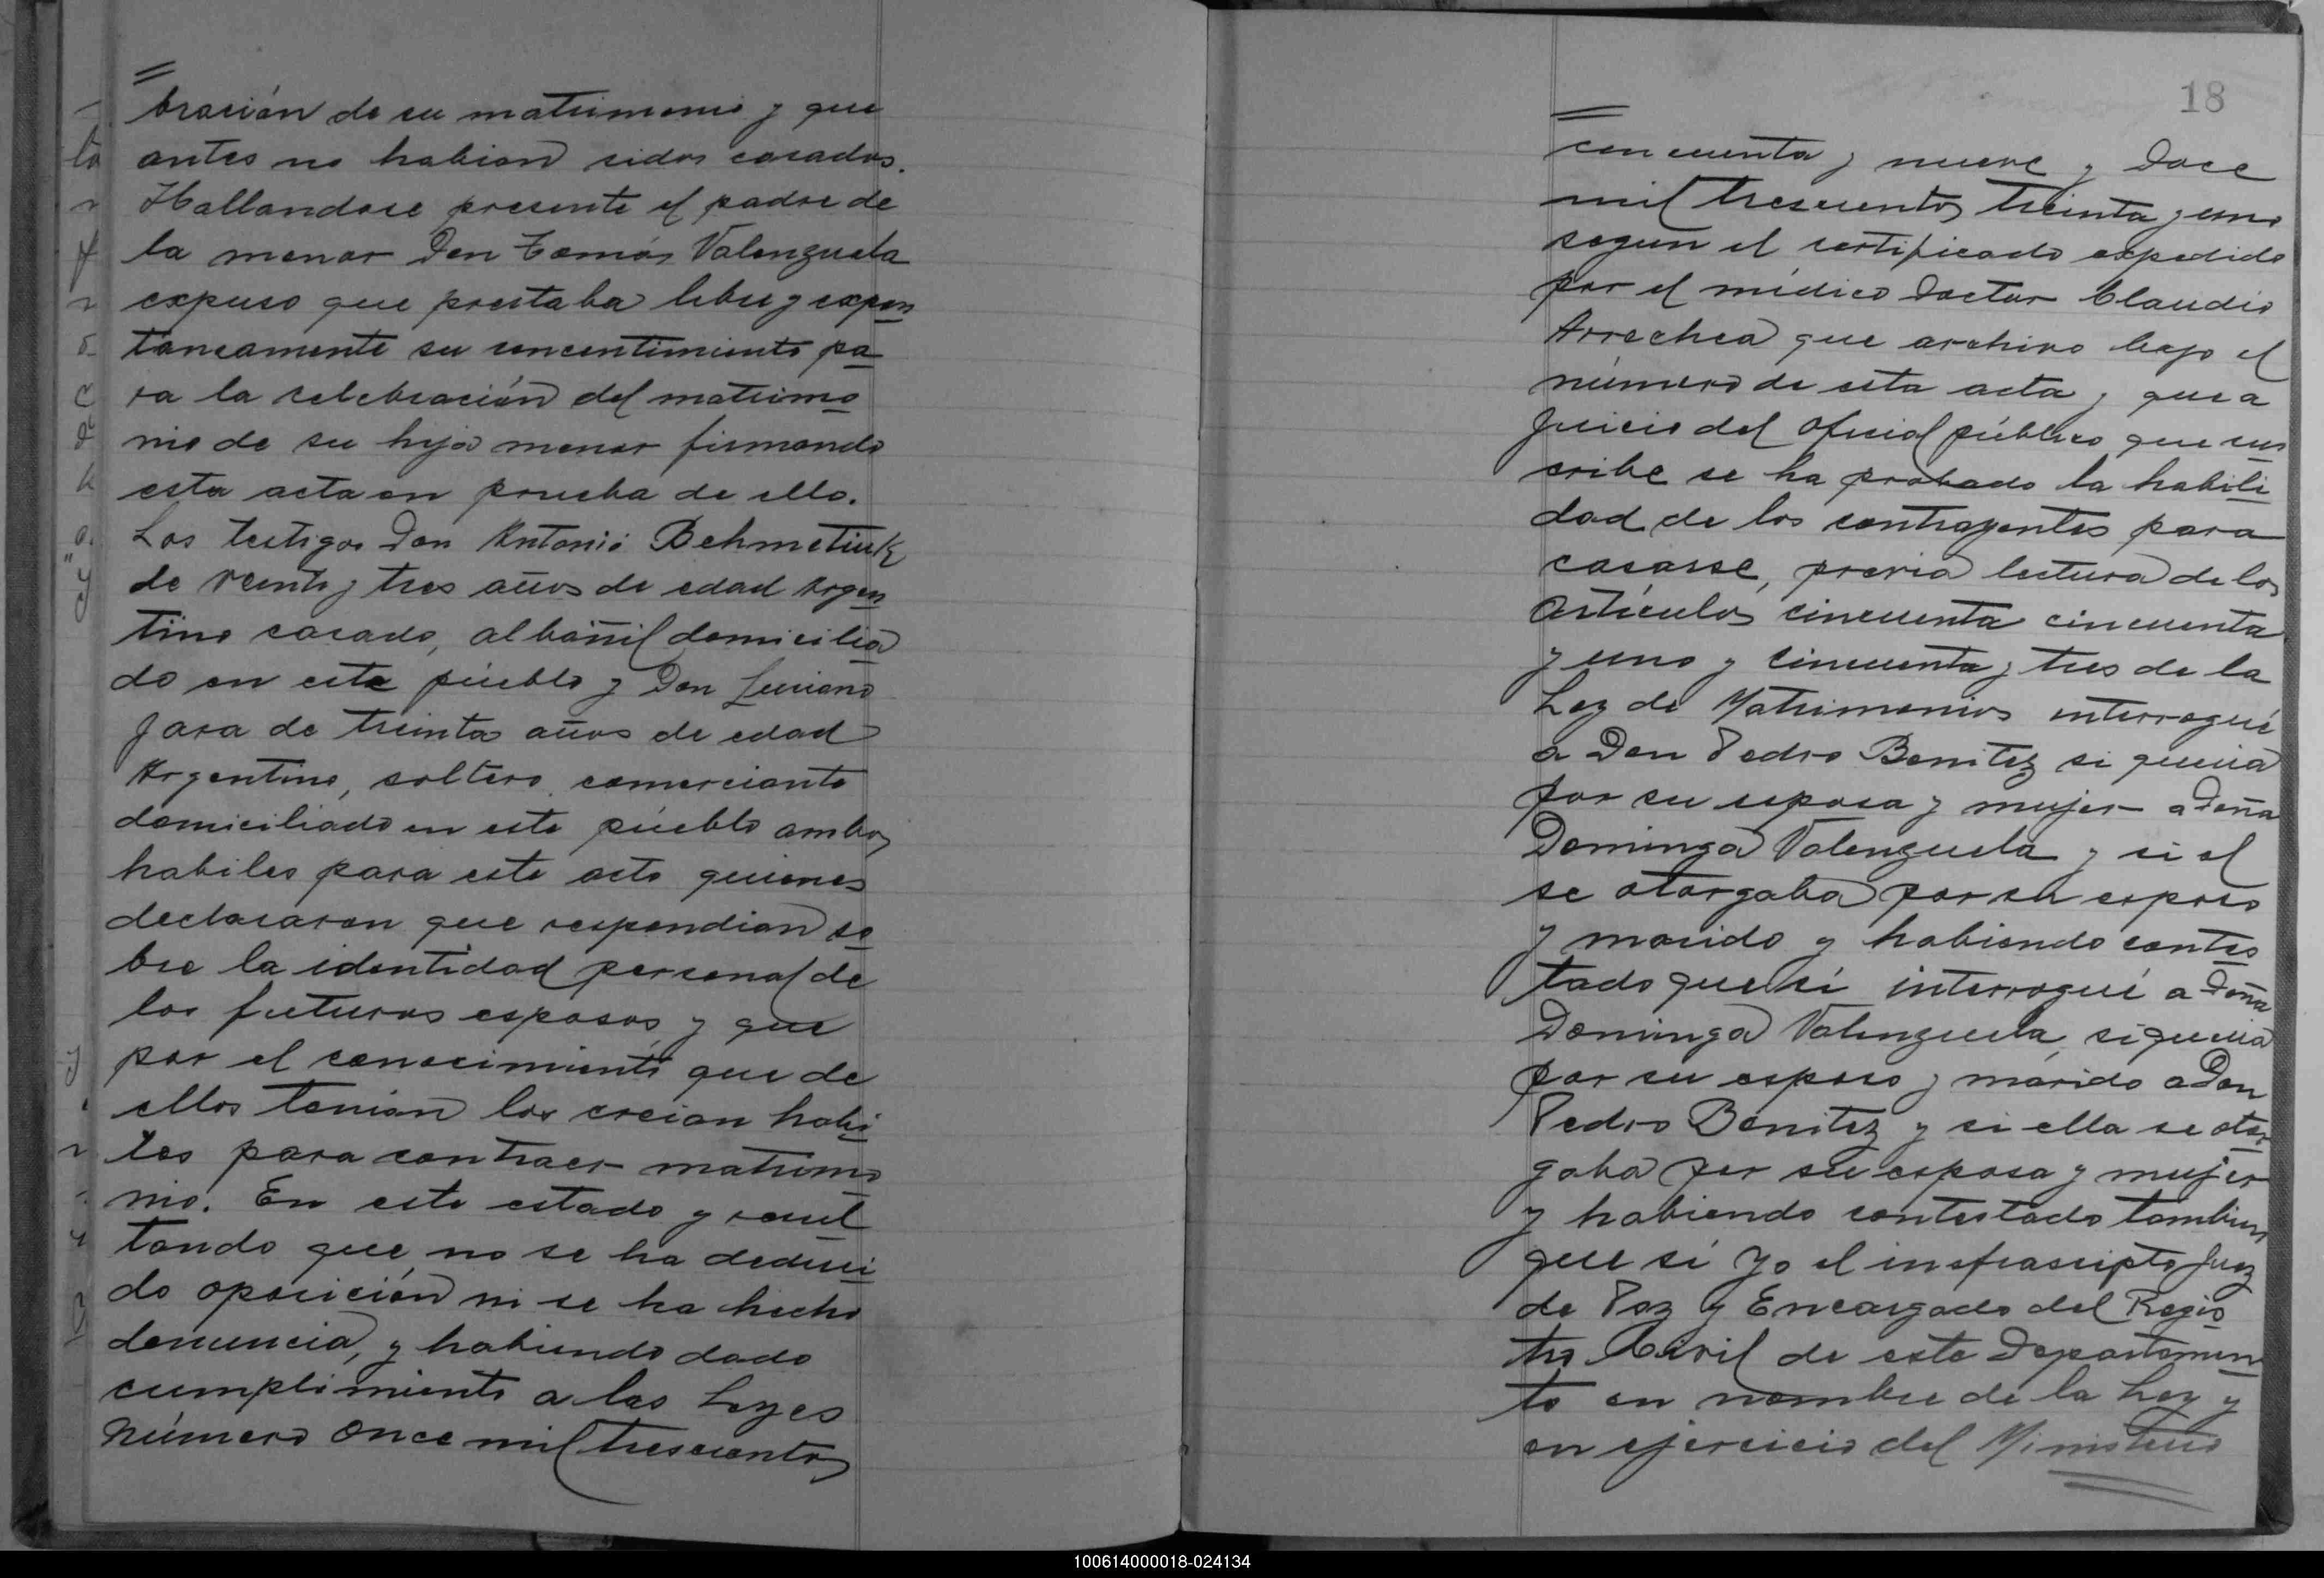 bración de su matrimonio y que
antes no habian sidos casados.
Hallandose presente el padre de
la menor Don Tomás Valenzuela
expuso que prestaba libre y expon
táneamente su concentimiento pa
ra la celebración del matrimo
nio de su hija menor firmando
esta acta en prueba de ello.
Los testigos Don Antonio Behmetiuk
de veinte y tres años de edad Argen
tino casado, albañil domicilia
do en este pueblo y Don Luciano
Jara de treinta años de edad
Argentino, soltero, comerciante
domiciliado en este pueblo ambos
habiles para este acto quienes
declararon que respondian so
bre la identidad personal de
los futuros esposos, y que
por el conocimiento que de
ellos tenian los creian habi
les para contraer matrimo
nio. En este estado y resul
tando que no se ha deduci
do oposición ni se ha hecho
denuncia, y habiendo dado
cumplimiento a las Leyes
número once mil trescientos
18
concuenta y nueve y doce
mil trescientos treinta y uno
segun el certificado expedido
por el médico doctor Claudio
Arrechea que archivo bajo el
número de esta acta y que a
juicio del oficial público que sus
cribe se ha probado la habili
dad de los contrayentes para
casarse, previa lectura de los
artículos cincuenta cincuenta
y uno y cincuenta y tres de la
Ley de Matrimonios interrogué
a Don Pedro Benitez si queria
por su esposa y mujer a Doña
Dominga Valenzuela y si el
se otorgaba por su esposo
y marido y habiendo contes
tado que sí interrogué a Doña
Dominga Valenzuela, si queria
por su esposo y marido a Don
Pedro Benitez y si ella se otor
gaba por su esposa y mujer
y habiendo contestado tambien
que sí Yo el infrascripto Juez
de Paz y Encargado del Regis
tro Civil de este Departamen
to en nombre de la Ley y
en ejercicio del Ministerio
100614000018-024134